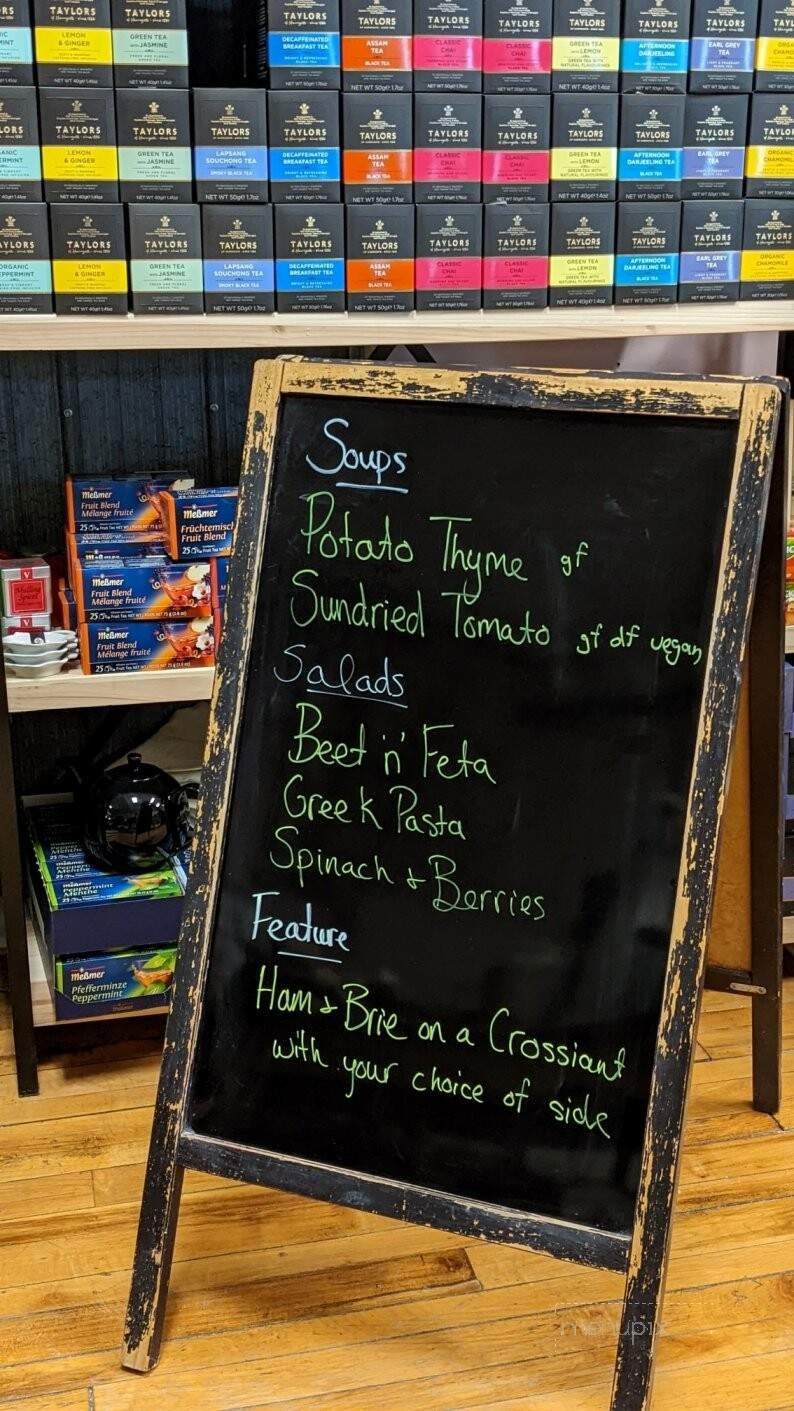 TAYLORS TAYLORS TAYLORS TAYLORS TAYLORS TAYLORS TAYLORS TAYLORS TAYLORS
LEMON & GINGER
GREEN TEA with JASMINE
DECAFFEINATED BREAKFAST TEA
ASSAM TEA
BLACK TEA
CLASSIC CHAI
CLASSIC CHAI
GREEN TEA with LEMON
GREEN TEA WITH NATURAL FLAVOURINGS
AFTERNOON DARJEELING
EARL GREY TEA
TAYLORS TAYLORS TAYLORS TAYLORS TAYLORS TAYLORS TAYLORS TAYLORS TAYLORS TAYLORS
LEMON & GINGER
GREEN TEA with JASMINE
LAPSANG SOUCHONG TEA
SMOKY BLACK TEA
DECAFFEINATED BREAKFAST TEA
ASSAM TEA
BLACK TEA
CLASSIC CHAI
CLASSIC CHAI
GREEN TEA with LEMON
AFTERNOON DARJEELING TEA
EARL GREY TEA
ORGANIC CHAMOMILE
TAYLORS TAYLORS TAYLORS TAYLORS TAYLORS TAYLORS TAYLORS TAYLORS TAYLORS TAYLORS TAYLORS
ORGANIC PEPPERMINT
LEMON & GINGER
GREEN TEA with JASMINE
LAPSANG SOUCHONG TEA
SMOKY BLACK TEA
DECAFFEINATED BREAKFAST TEA
ASSAM TEA
BLACK TEA
CLASSIC CHAI
CLASSIC CHAI
GREEN TEA with LEMON
AFTERNOON DARJEELING TEA
EARL GREY TEA
ORGANIC CHAMOMILE
Soups
Potato Thyme gf
Sundried Tomato gf df vegan
Salads
Beet 'n' Feta
Greek Pasta
Spinach & Berries
Feature
Ham & Brie on a Crossiant
with your choice of side
Meßmer
Fruit Blend
Mélange fruité
Früchtemisch
Fruit Blend
Meßmer
Fruit Blend
Mélange fruité
Meßmer
Fruit Blend
Mélange fruité
Peppermint
Menthe
Meßmer
Pfefferminze
Peppermint
menupix